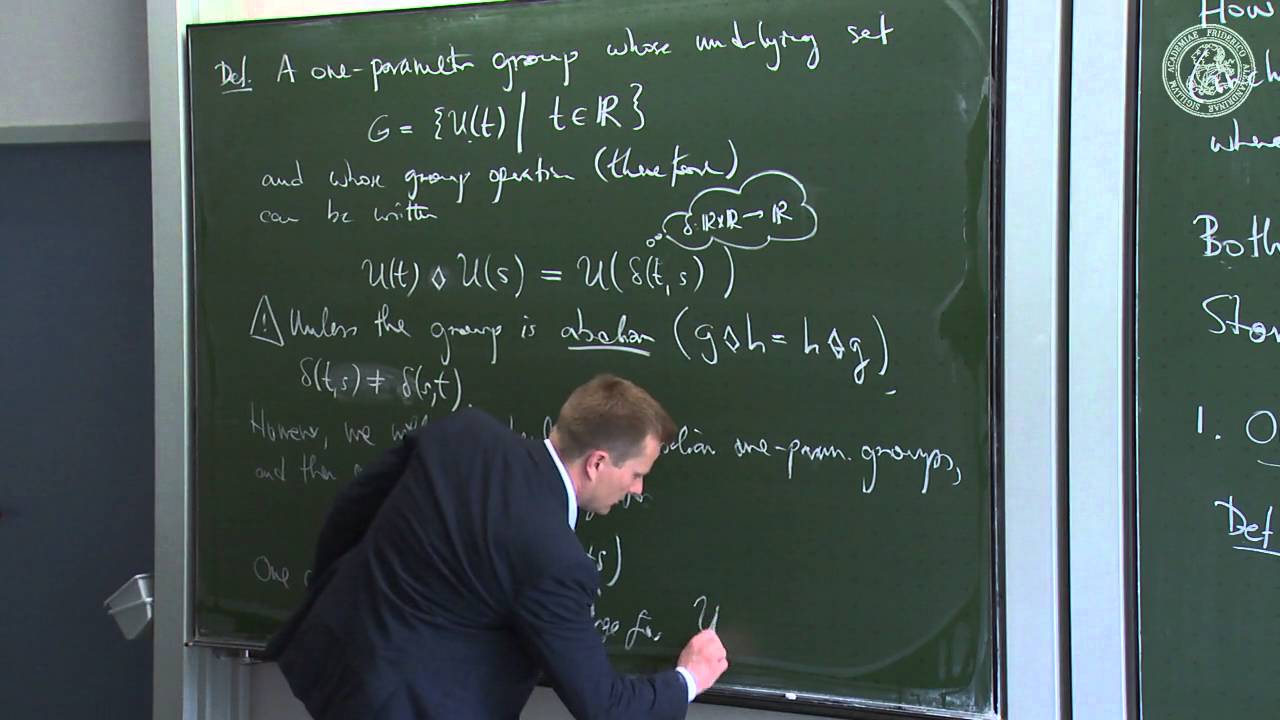 Def. A one-parametr group whose underlying set
G = {U(t) | t ∈ ℝ}
and whose group operation (therefore)
can be written
δ: ℝ×ℝ → ℝ
U(t) ◊ U(s) = U(δ(t,s))
⚠ Unless the group is abelian (g◊h = h◊g)
δ(t,s) ≠ δ(s,t).
However, we will one-param. groups,
and then
One
U
How
where
Both
Ston
1. O
Def
ACADEMIAE FRIDERICO ALEXANDRINAE SIGILLUM